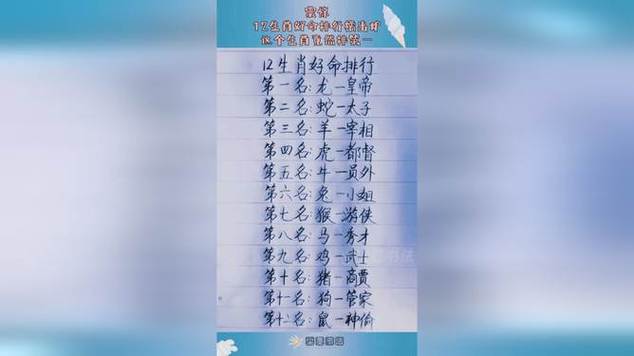 震惊
12生肖好命排行榜出炉
这个生肖竟然排第一
12生肖好命排行
第一名:龙一皇帝
第二名:蛇一太子
第三名:羊一宰相
第四名:虎一都督
第五名:牛一员外
第六名:兔一小姐
第七名:猴一游侠
第八名:马一秀才
第九名:鸡一武士
第十名:猪一商贾
第十一名:狗一管家
第十二名:鼠一神偷